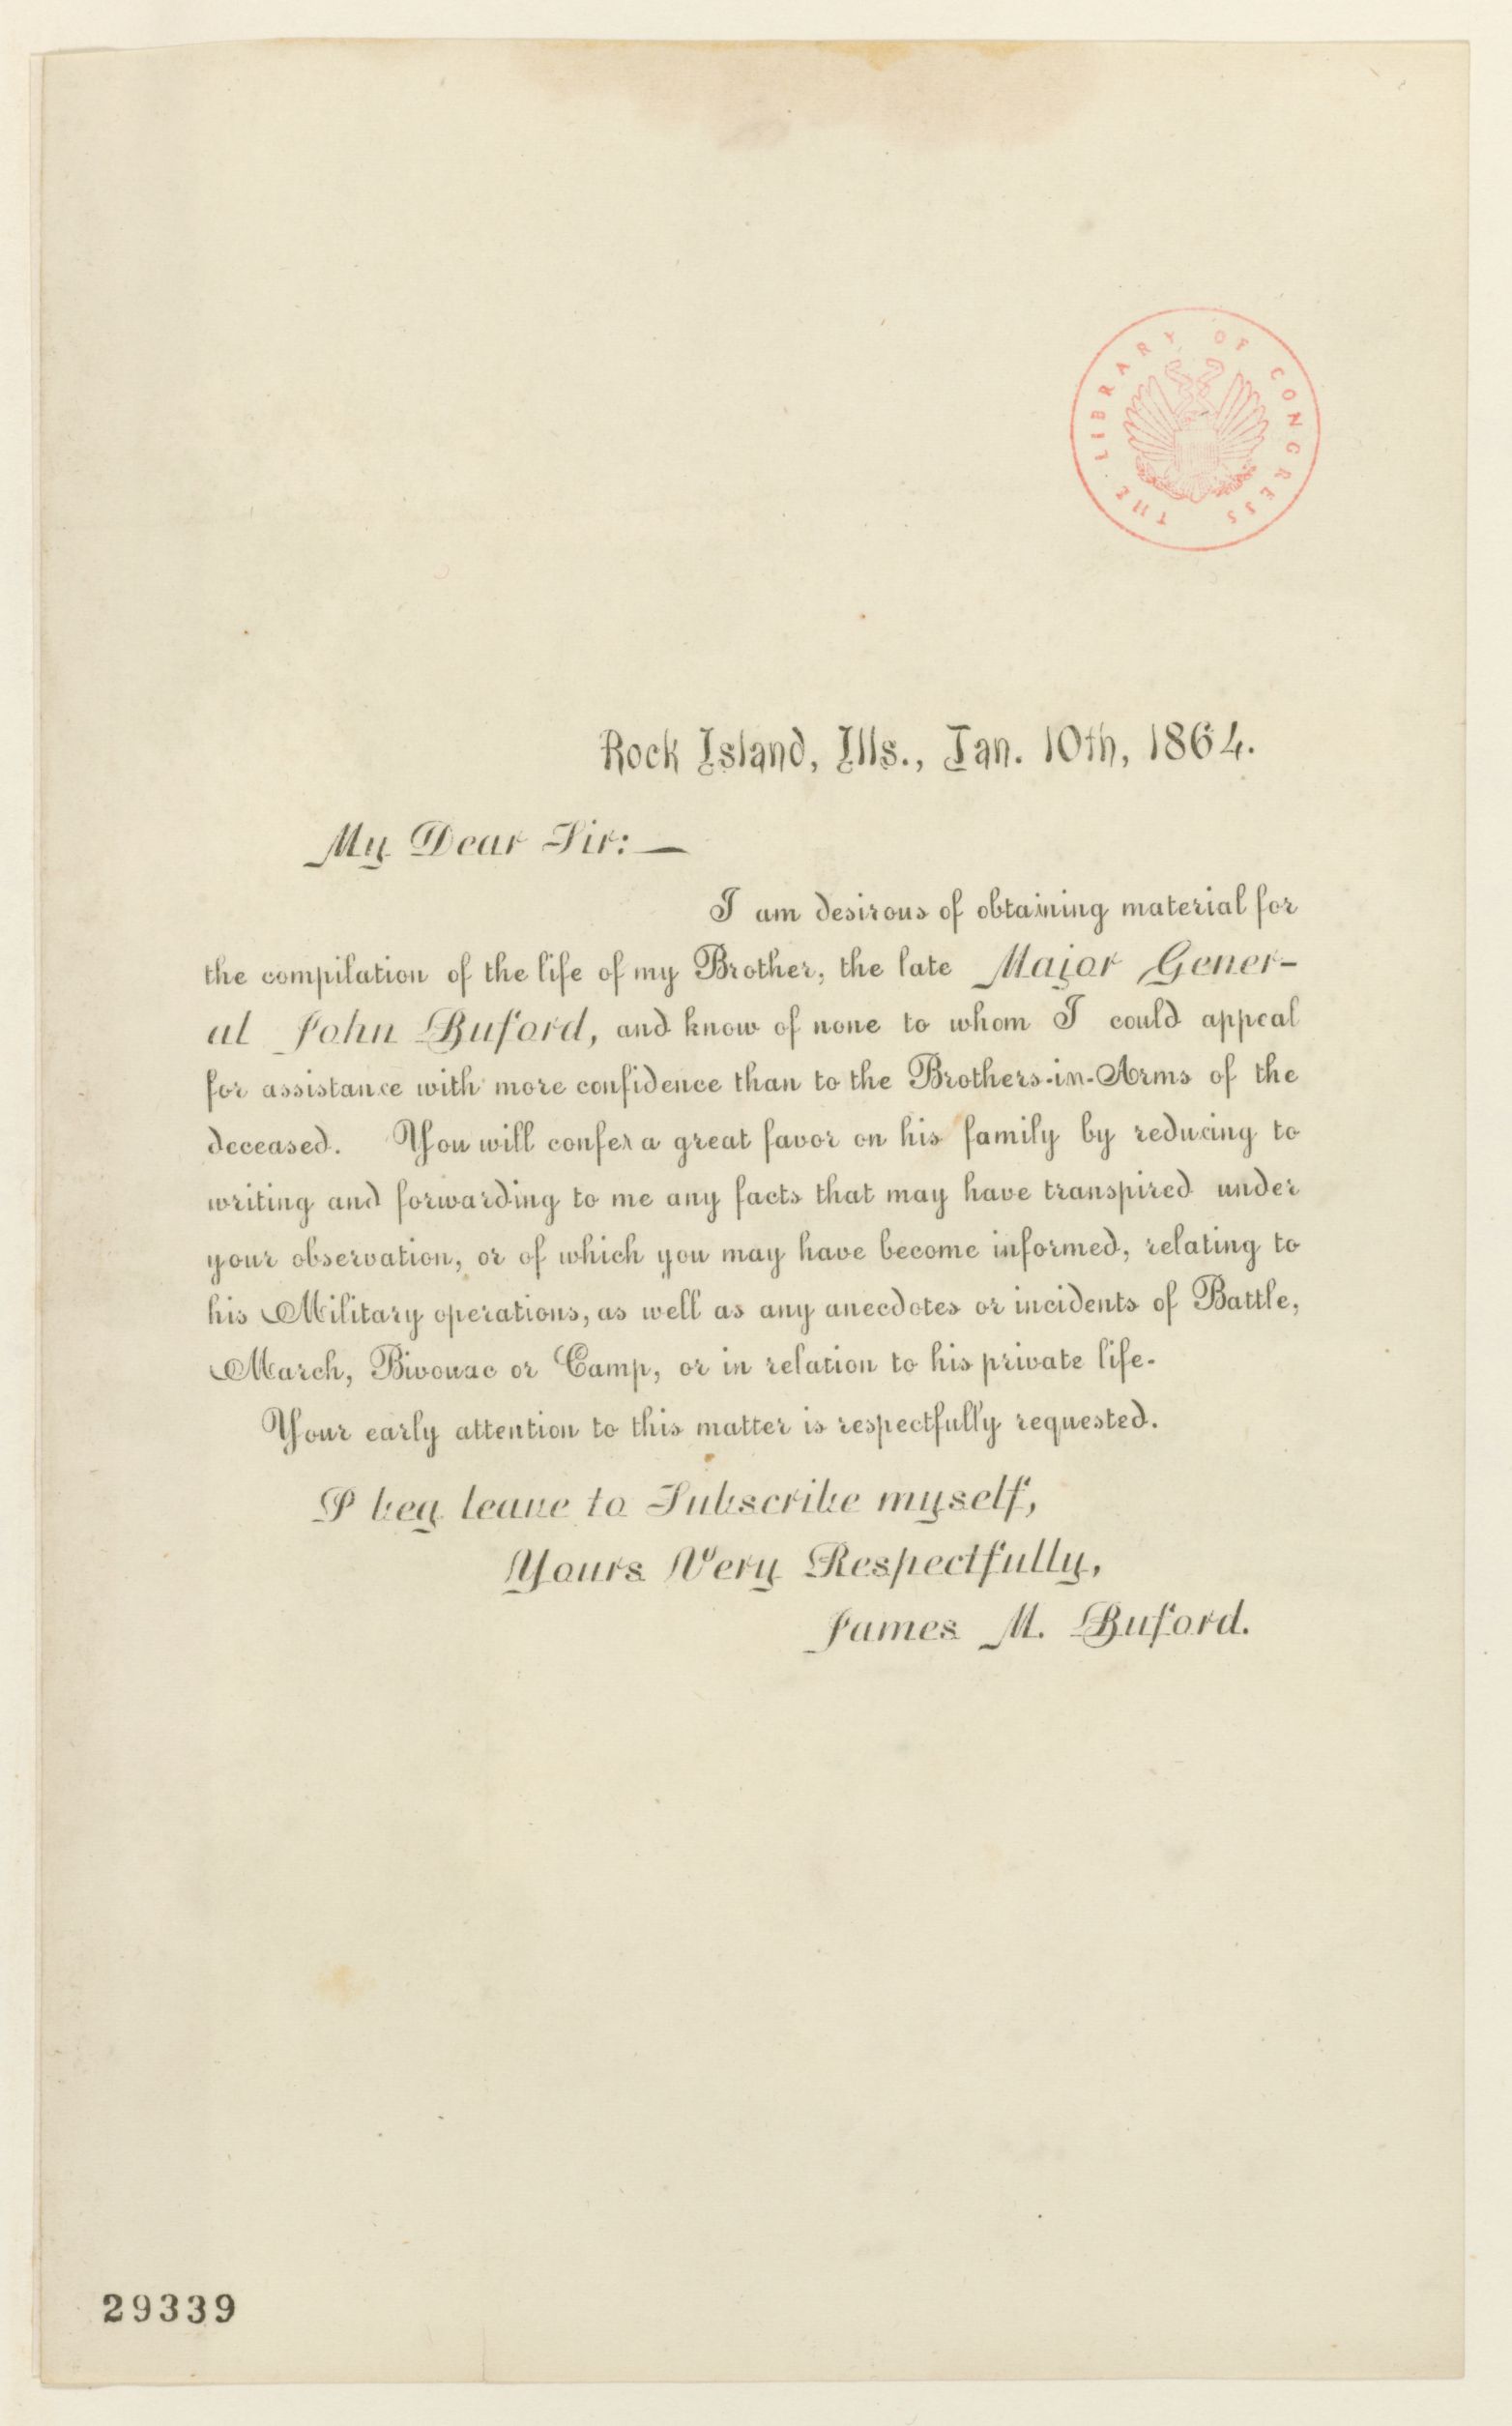 THE LIBRARY OF CONGRESS
Rock Island, Ills., Jan. 10th, 1864.
My Dear Sir:—
I am desirous of obtaining material for
the compilation of the life of my Brother, the late Major Gener-
al John Buford, and know of none to whom I could appeal
for assistance with more confidence than to the Brothers-in-Arms of the
deceased. You will confer a great favor on his family by reducing to
writing and forwarding to me any facts that may have transpired under
your observation, or of which you may have become informed, relating to
his Military operations, as well as any anecdotes or incidents of Battle,
March, Bivouac or Camp, or in relation to his private life.
Your early attention to this matter is respectfully requested.
I beg leave to Subscribe myself,
Yours Very Respectfully,
James M. Buford.
29339